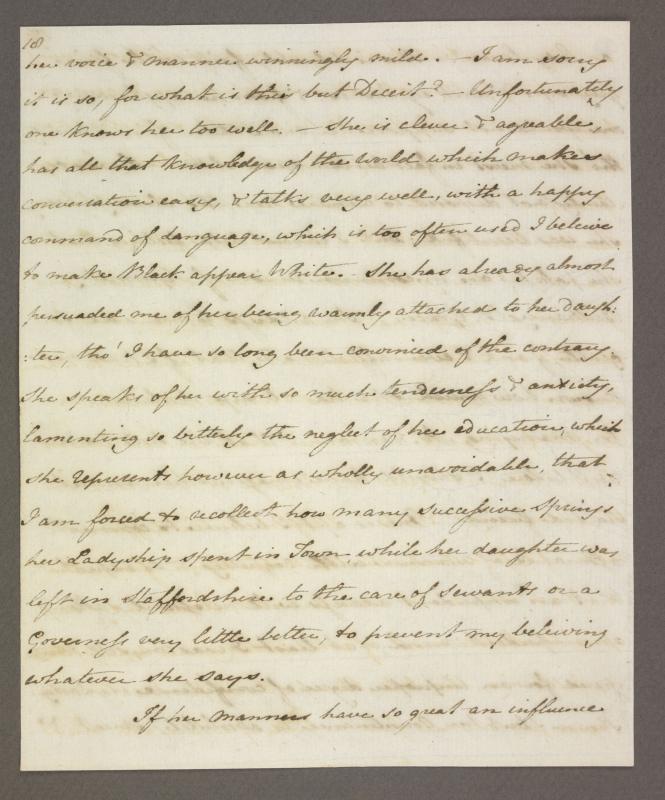 18
her voice & manner winningly mild. — I am sorry
it is so, for what is this but Deceit? — Unfortunately
one knows her too well. — She is clever & agreable,
has all that knowledge of the world which makes
conversation easy, & talks very well, with a happy
command of Language, which is too often used I beleive
to make Black appear White. — She has already almost
persuaded me of her being warmly attached to her daugh:
:ter, tho' I have so long been convinced of the contrary.
She speaks of her with so much tenderness & anxiety,
lamenting so bitterly the neglect of her education, which
she represents however as wholly unavoidable, that
I am forced to recollect how many successive Springs
her Ladyship spent in Town, while her daughter was
left in Staffordshire to the care of servants or a
Governess very little better, to prevent my beleiving
whatever she says.
If her manners have so great an influence